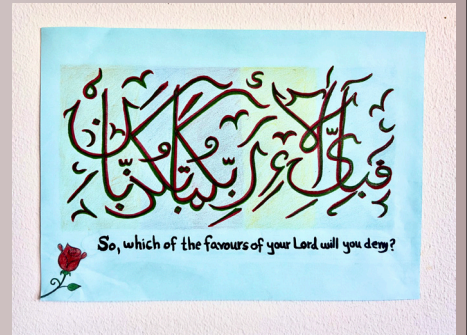 فبأي آلاء ربكما تكذبان
So, which of the favours of your Lord will you deny?